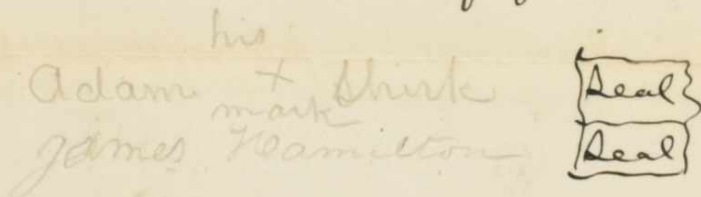 his
Adam + Shirk Seal
mark
James Hamilton Seal